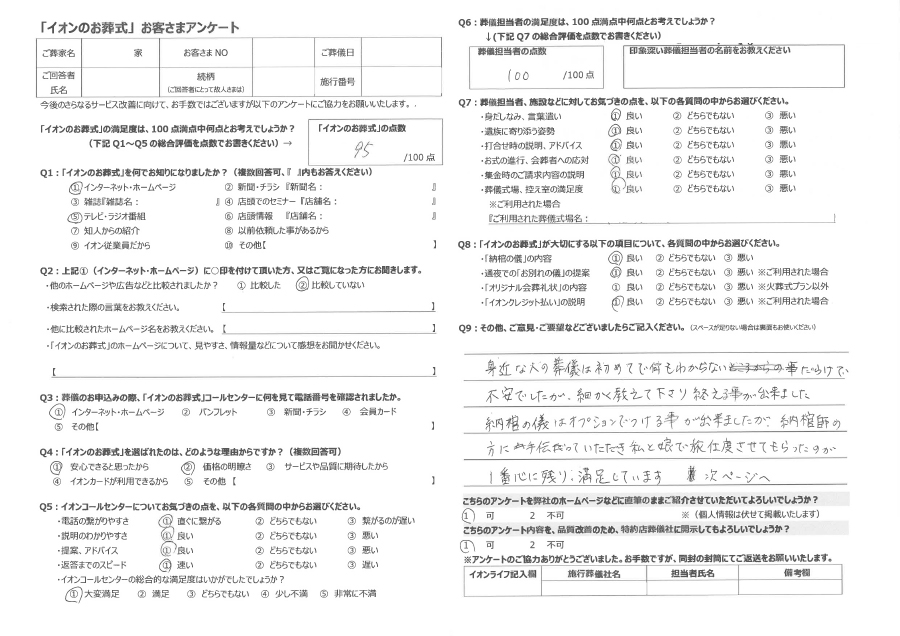 「イオンのお葬式」お客さまアンケート
ご葬家名 家 お客さまNO ご葬儀日
ご回答者氏名 続柄 (ご回答者にとって故人さまは) 施行番号
今後のさらなるサービス改善に向けて、お手数ではございますが以下のアンケートにご協力をお願いいたします。
「イオンのお葬式」の満足度は、100点満点中何点とお考えでしょうか？
（下記Q1～Q5の総合評価を点数でお書きください）→
「イオンのお葬式」の点数
95 /100点
Q1：「イオンのお葬式」を何でお知りになりましたか？（複数回答可、『 』内もお答えください）
① インターネット・ホームページ ② 新聞・チラシ『新聞名： 』
③ 雑誌『雑誌名： 』 ④ 店頭でのセミナー『店舗名： 』
⑤ テレビ・ラジオ番組 ⑥ 店頭情報 『店舗名： 』
⑦ 知人からの紹介 ⑧ 以前依頼した事があるから
⑨ イオン従業員だから ⑩ その他【 】
Q2：上記①（インターネット・ホームページ）に○印を付けて頂いた方、又はご覧になった方にお聞きします。
・他のホームページや広告などと比較されましたか？ ① 比較した ② 比較していない
・検索された際の言葉をお教えください。 【 】
・他に比較されたホームページ名をお教えください。【 】
・「イオンのお葬式」のホームページについて、見やすさ、情報量などについて感想をお聞かせください。
【 】
Q3：葬儀のお申込みの際、「イオンのお葬式」コールセンターに何を見て電話番号を確認されましたか。
① インターネット・ホームページ ② パンフレット ③ 新聞・チラシ ④ 会員カード
⑤ その他【 】
Q4：「イオンのお葬式」を選ばれたのは、どのような理由からですか？（複数回答可）
① 安心できると思ったから ② 価格の明瞭さ ③ サービスや品質に期待したから
④ イオンカードが利用できるから ⑤ その他 【 】
Q5：イオンコールセンターについてお気づきの点を、以下の各質問の中からお選びください。
・電話の繋がりやすさ ① 直ぐに繋がる ② どちらでもない ③ 繋がるのが遅い
・説明のわかりやすさ ① 良い ② どちらでもない ③ 悪い
・提案、アドバイス ① 良い ② どちらでもない ③ 悪い
・返答までのスピード ① 速い ② どちらでもない ③ 遅い
・イオンコールセンターの総合的な満足度はいかがでしたでしょうか？
① 大変満足 ② 満足 ③ どちらでもない ④ 少し不満 ⑤ 非常に不満
Q6：葬儀担当者の満足度は、100点満点中何点とお考えでしょうか？
↓(下記Q7の総合評価を点数でお書きください)
葬儀担当者の点数 印象深い葬儀担当者の名前をお教えください
100 /100点
Q7：葬儀担当者、施設などに対してお気づきの点を、以下の各質問の中からお選びください。
・身だしなみ、言葉遣い ① 良い ② どちらでもない ③ 悪い
・遺族に寄り添う姿勢 ① 良い ② どちらでもない ③ 悪い
・打合せ時の説明、アドバイス ① 良い ② どちらでもない ③ 悪い
・お式の進行、会葬者への応対 ① 良い ② どちらでもない ③ 悪い
・集金時のご請求内容の説明 ① 良い ② どちらでもない ③ 悪い
・葬儀式場、控え室の満足度 ① 良い ② どちらでもない ③ 悪い
※ご利用された場合
『ご利用された葬儀式場名： 』
Q8：「イオンのお葬式」が大切にする以下の項目について、各質問の中からお選びください。
・「納棺の儀」の内容 ① 良い ② どちらでもない ③ 悪い
・通夜での「お別れの儀」の提案 ① 良い ② どちらでもない ③ 悪い ※ご利用された場合
・「オリジナル会葬礼状」の内容 ① 良い ② どちらでもない ③ 悪い ※火葬式プラン以外
・「イオンクレジット払い」の説明 ① 良い ② どちらでもない ③ 悪い ※ご利用された場合
Q9：その他、ご意見・ご要望などございましたらご記入ください。（スペースが足りない場合は裏面もお使いください）
身近な人の葬儀は初めてで何もわからない だらけで
不安でしたが、細かく教えて下さり終える事が出来ました
納棺の儀はオプションでつける事が出来ましたが、納棺師の
方にお手伝だっていただき私と娘で旅仕度させてもらったのが
1番心に残り、満足しています 次ページへ
こちらのアンケートを弊社のホームページなどに直筆のままご紹介させていただいてよろしいでしょうか？
1 可 2 不可 ※（個人情報は伏せて掲載いたします）
こちらのアンケート内容を、品質改善のため、特約店葬儀社に開示してもよろしいでしょうか？
1 可 2 不可
※アンケートのご協力ありがとうございました。お手数ですが、同封の封筒にてご返送をお願いいたします。
イオンライフ記入欄 施行葬儀社名 担当者氏名 備考欄